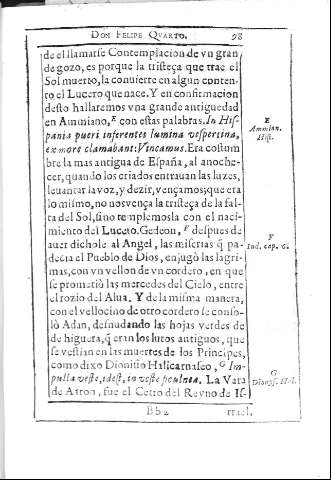 DON FELIPE QVARTO. 98
de el llamarse Contemplacion de vn gran
de gozo, es porque la tristeça que trae el
Sol muerto, la conuierte en algun conten-
to el Lucero que nace. Y en confirmacion
desto hallaremos vna grande antiguedad
en Ammiano, E con estas palabras. In His-
pania pueri inferentes lumina vespertina,
ex more clamabant: Vincamus. Era costum
bre la mas antigua de España, al anoche-
cer, quando los criados entrauan las luzes,
leuantar la voz, y dezir, vençamos; que era
lo mismo, no nos vença la tristeça de la fal-
ta del Sol, sino templemosla con el naci-
miento del Lucero. Gedeon, F despues de
auer dichole al Angel, las miserias q̃ pa-
decia el Pueblo de Dios, enjugò las lagri-
mas, con vn vellon de vn cordero, en que
se prometiò las mercedes del Cielo, entre
el rozio del Alua. Y de la misma manera,
con el vellocino de otro cordero se conso-
lò Adan, desnudando las hojas verdes de
de higuera, q̃ eran los lutos antiguos, que
se vestian en las muertes de los Principes,
como dixo Dionisio Halicarnaseo, G
pulla veste, idest, in veste The Vara
de Aaron, fue el Cetro del Reyno de Is-
Bb2 rrael.
E
Ammian.
Hist.
F
Iud. cap. 6.
G
Dionys. Hal.